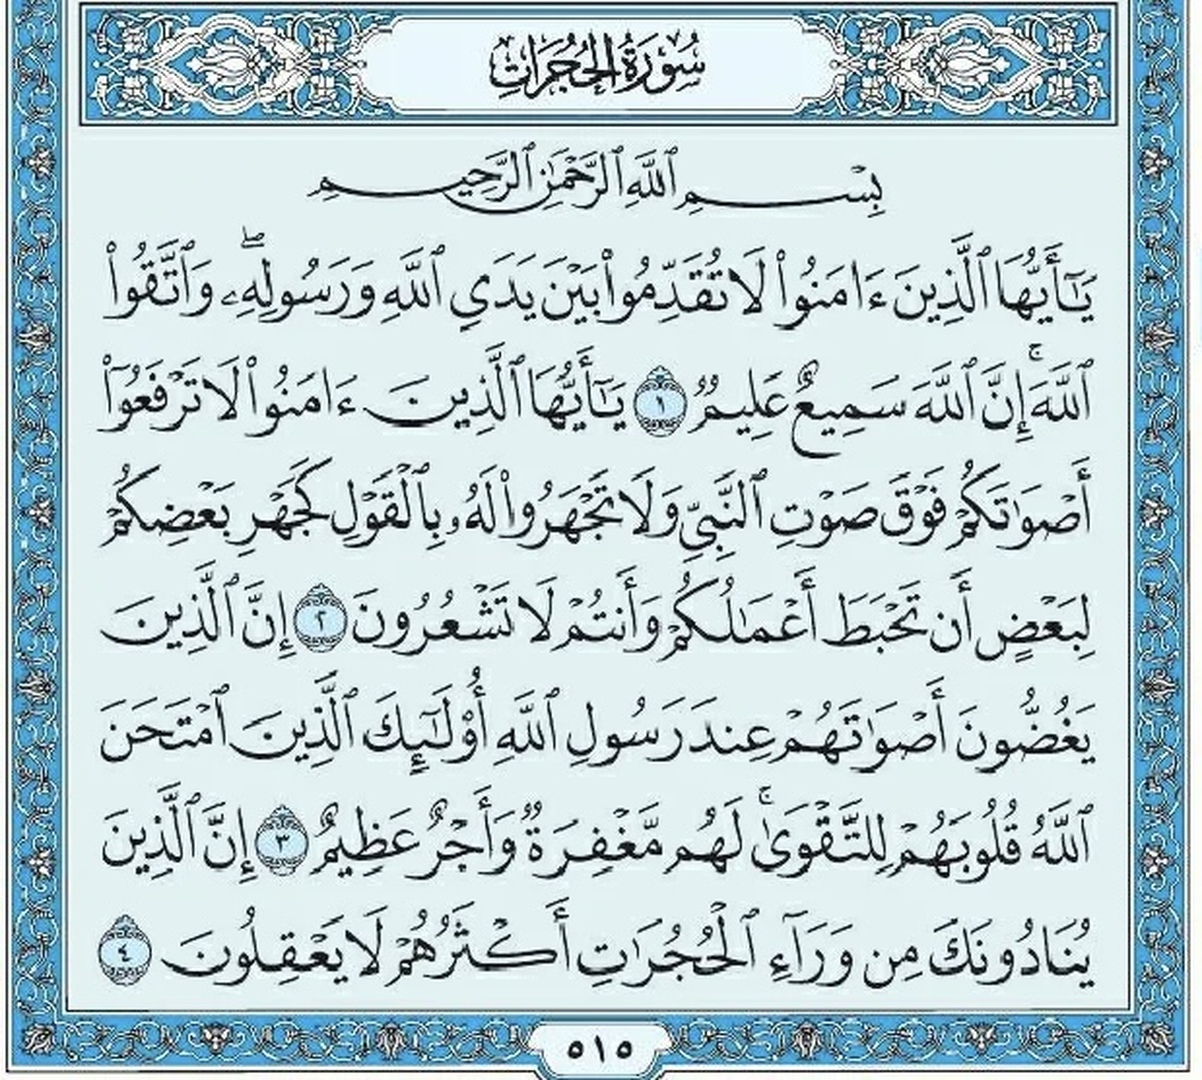 سُورَةُ الْحُجُرَاتِ
بِسْمِ ٱللَّهِ ٱلرَّحْمَٰنِ ٱلرَّحِيمِ
يَٰٓأَيُّهَا ٱلَّذِينَ ءَامَنُوا۟ لَا تُقَدِّمُوا۟ بَيْنَ يَدَىِ ٱللَّهِ وَرَسُولِهِۦۖ وَٱتَّقُوا۟
ٱللَّهَۚ إِنَّ ٱللَّهَ سَمِيعٌ عَلِيمٌ ١ يَٰٓأَيُّهَا ٱلَّذِينَ ءَامَنُوا۟ لَا تَرْفَعُوٓا۟
أَصْوَٰتَكُمْ فَوْقَ صَوْتِ ٱلنَّبِىِّ وَلَا تَجْهَرُوا۟ لَهُۥ بِٱلْقَوْلِ كَجَهْرِ بَعْضِكُمْ
لِبَعْضٍ أَن تَحْبَطَ أَعْمَٰلُكُمْ وَأَنتُمْ لَا تَشْعُرُونَ ٢ إِنَّ ٱلَّذِينَ
يَغُضُّونَ أَصْوَٰتَهُمْ عِندَ رَسُولِ ٱللَّهِ أُو۟لَٰٓئِكَ ٱلَّذِينَ ٱمْتَحَنَ
ٱللَّهُ قُلُوبَهُمْ لِلتَّقْوَىٰۚ لَهُم مَّغْفِرَةٌ وَأَجْرٌ عَظِيمٌ ٣ إِنَّ ٱلَّذِينَ
يُنَادُونَكَ مِن وَرَآءِ ٱلْحُجُرَٰتِ أَكْثَرُهُمْ لَا يَعْقِلُونَ ٤
٥١٥